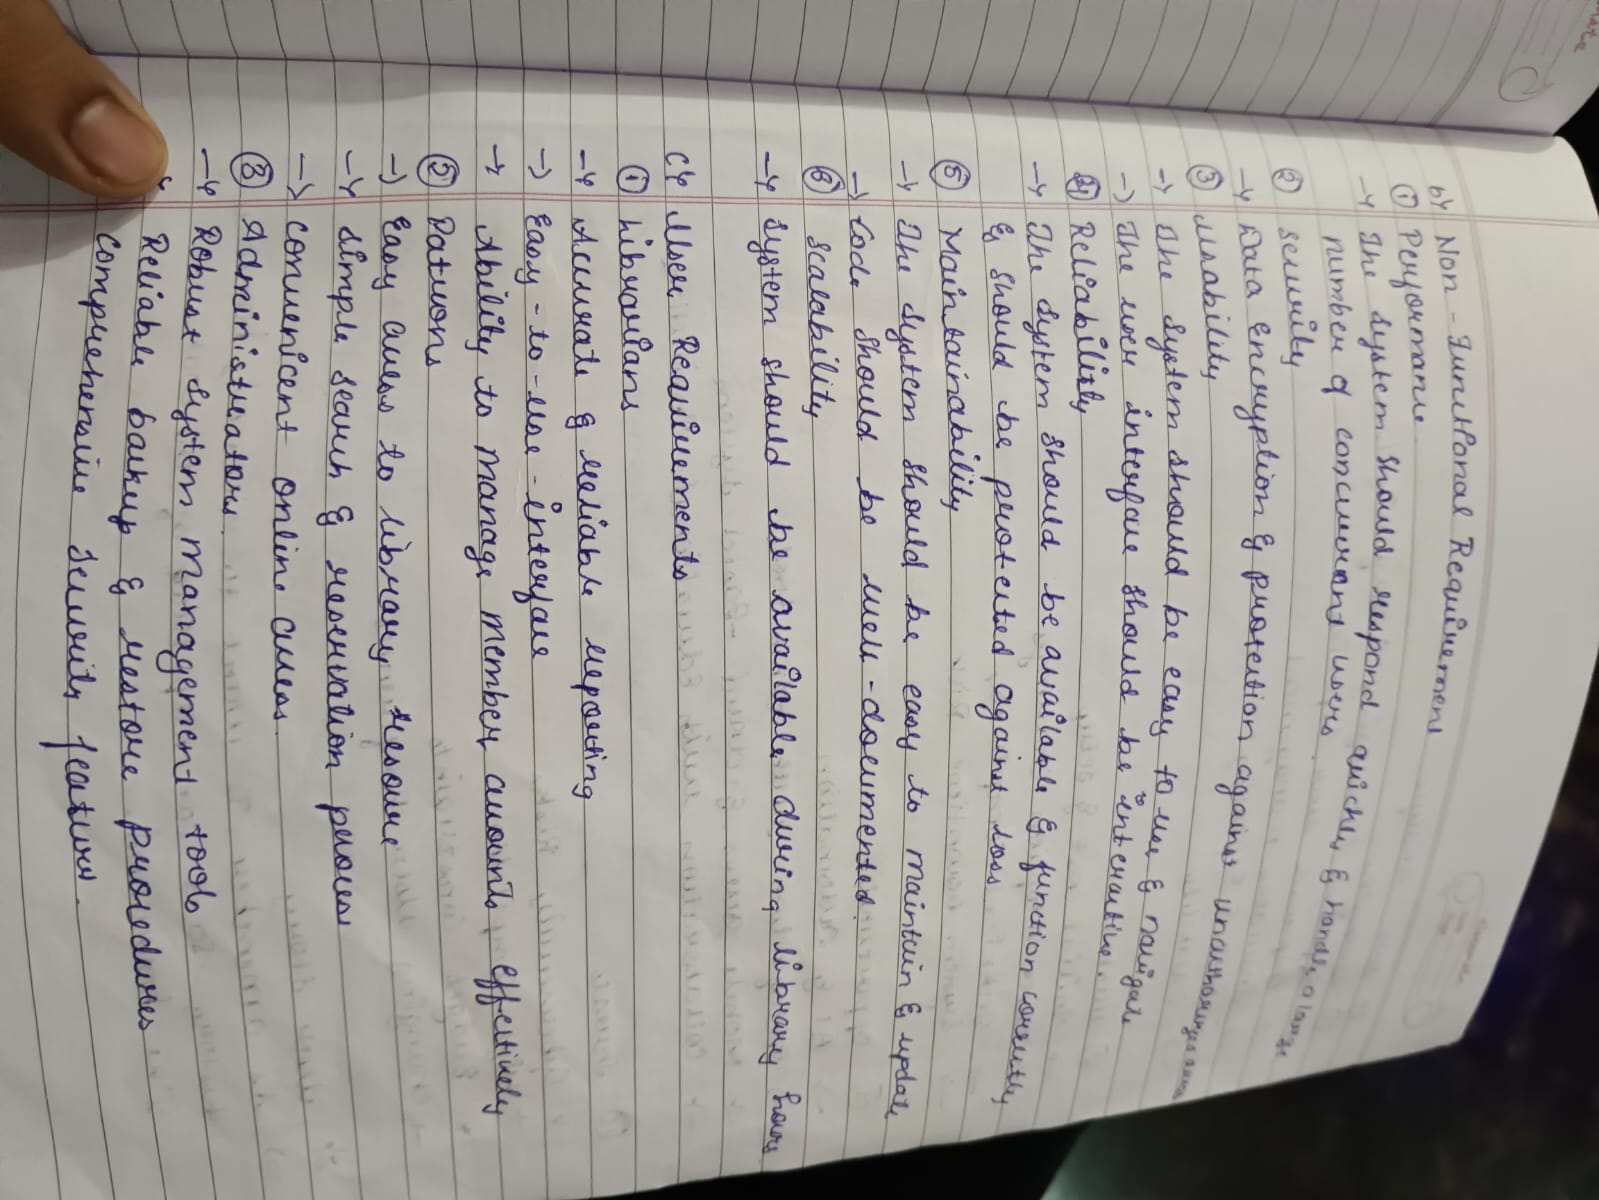 b> Non-Functional Requirement
① Performance
→ The system should respond quickly & handle a large
number of concurrent users
② security
→ Data encryption & protection against unauthorized access
③ usability
→ The system should be easy to use & navigate
→ The user interface should be interactive.
④ Reliability
→ The system should be available & function correctly
& should be protected against loss
⑤ Maintainability
→ The system should be easy to maintain & update
→ Code should be well-documented.
⑥ scalability
→ system should be available during library hours
C> User Requirements
① librarians
→ Accurate & reliable reporting
→ Easy-to-use-interface
→ Ability to manage member accounts effectively
② Patrons
→ Easy access to library resource
→ simple search & reservation process
→ convenicent online access.
③ Administrators.
→ Robust system management tools
Reliable backup & restore procedures
comprehensive security features.